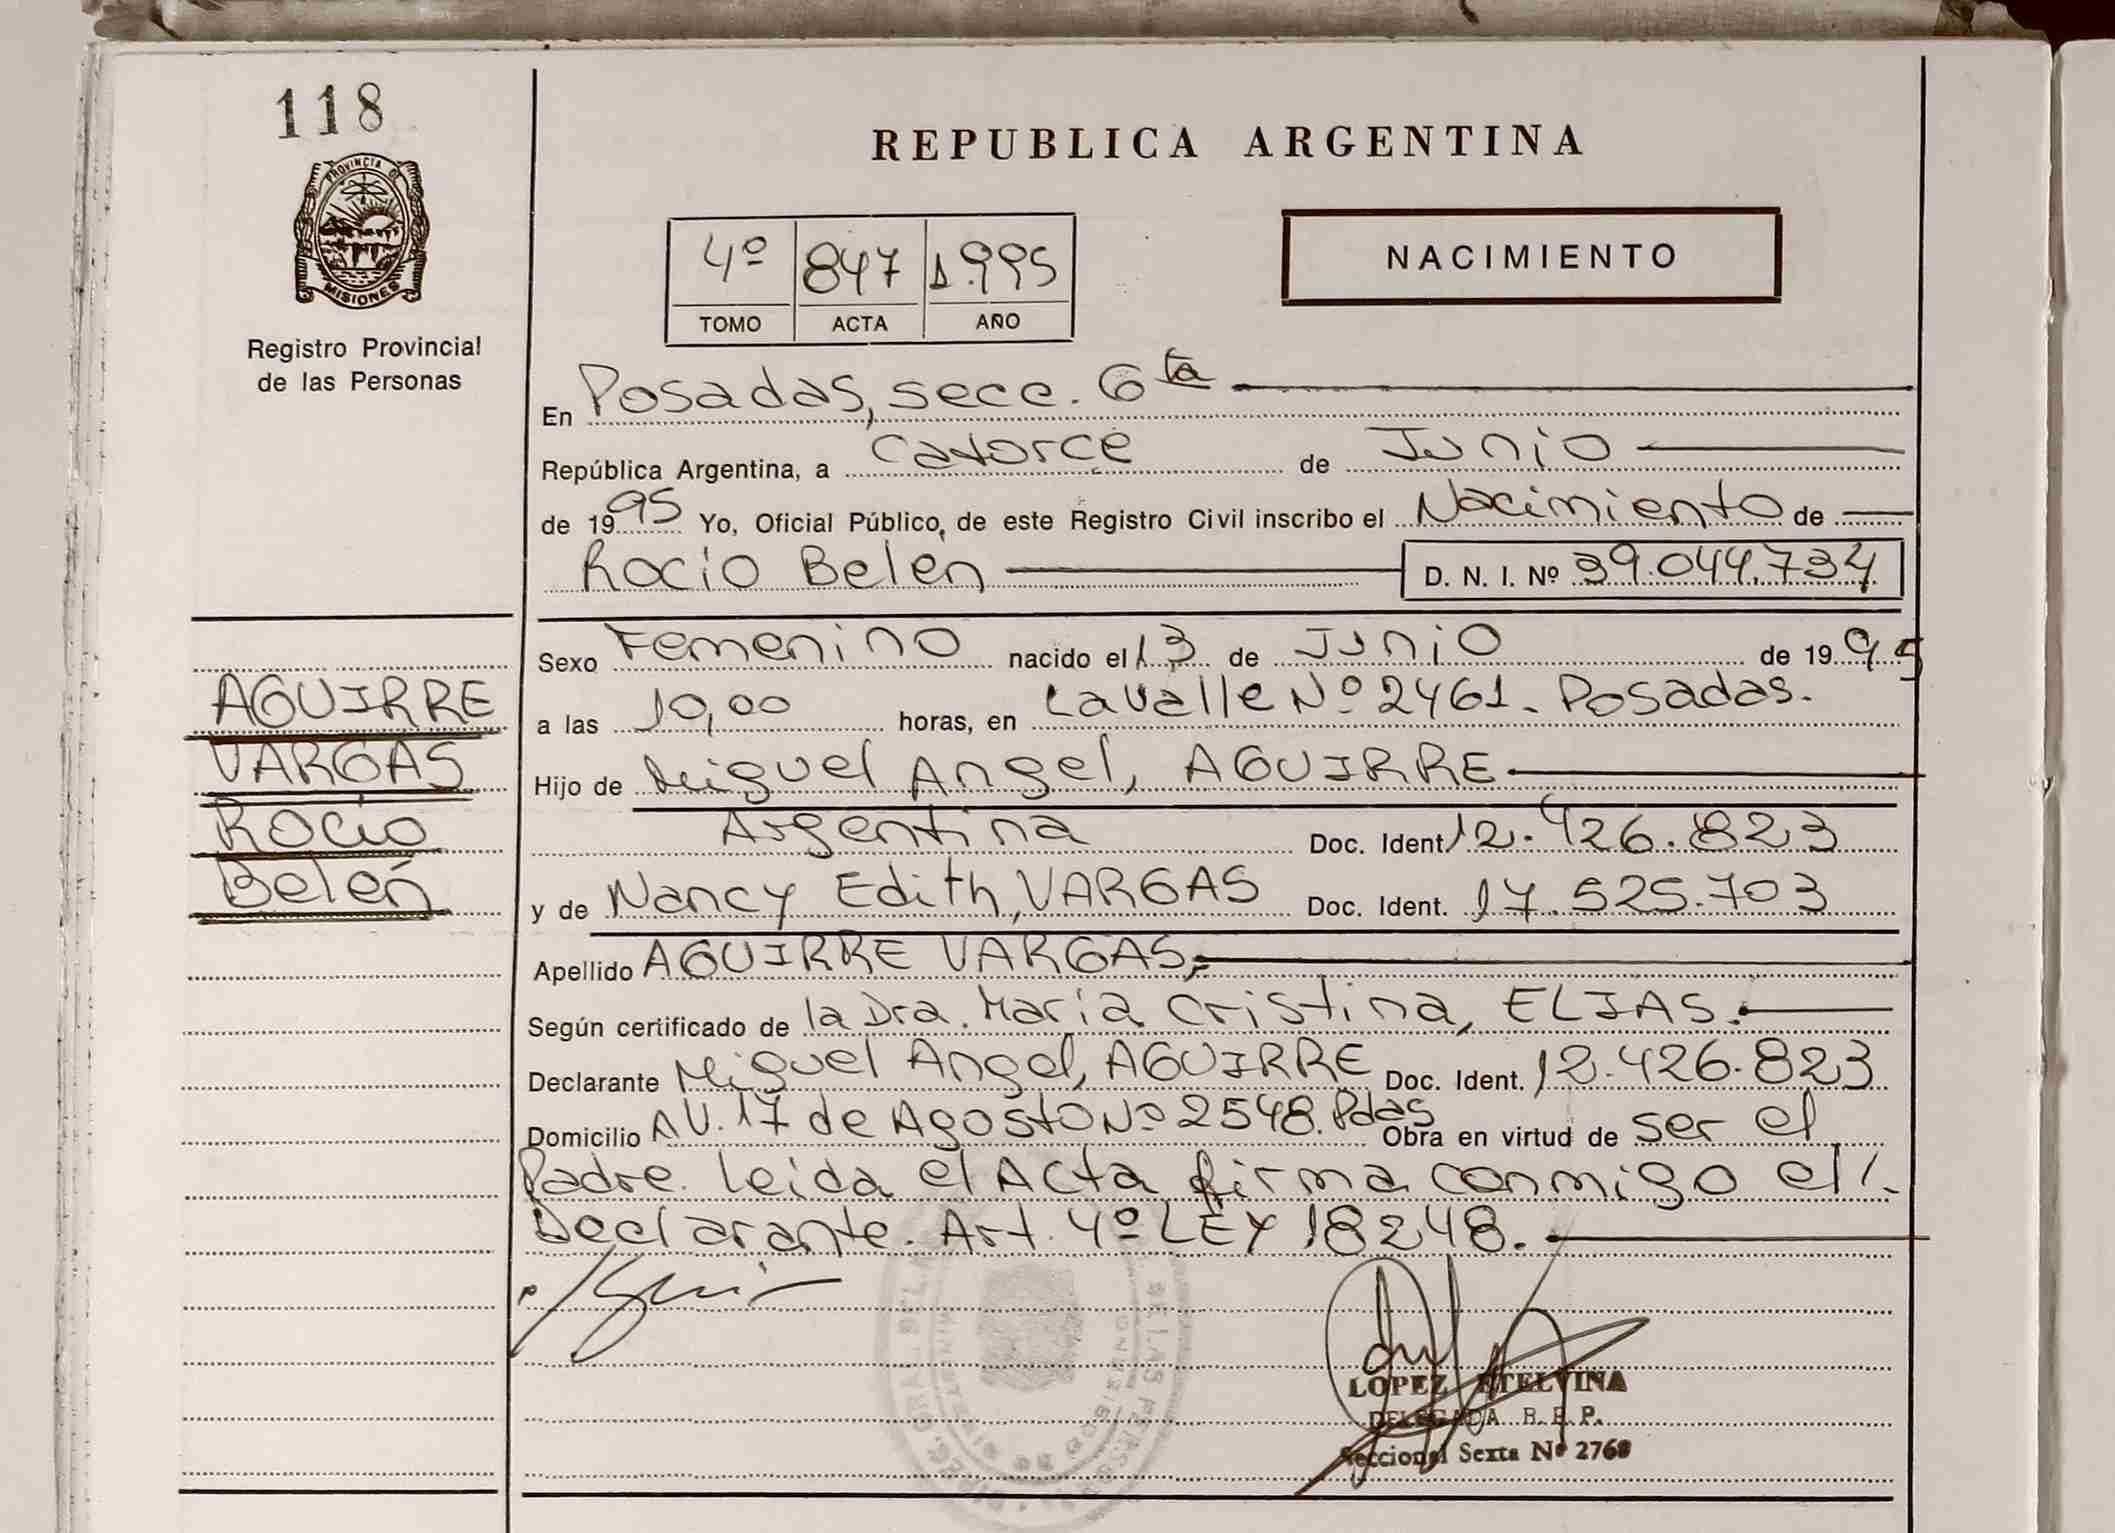 118
PROVINCIA DE
MISIONES
Registro Provincial
de las Personas
REPUBLICA ARGENTINA
4º 847 1.995
TOMO ACTA AÑO
NACIMIENTO
En Posadas, secc. 6ta
República Argentina, a Catorce de Junio
de 1995 Yo, Oficial Público, de este Registro Civil inscribo el Nacimiento de
Rocio Belen D. N. I. Nº 39.044.734
Sexo Femenino nacido el 13 de Junio de 1995
a las 10,00 horas, en Lavalle Nº 2461. Posadas.
Hijo de Miguel Angel, AGUIRRE
Argentina Doc. Ident 12.426.823
y de Nancy Edith, VARGAS Doc. Ident. 17.525.703
Apellido AGUIRRE VARGAS,
Según certificado de la Dra. María Cristina, ELIAS.
Declarante Miguel Angel, AGUIRRE Doc. Ident. 12.426.823
Domicilio AV. 17 de Agosto Nº 2548. Pdas Obra en virtud de ser el
Padre. Leida el Acta firma conmigo el
Declarante. Art. 4º LEY 18248.
AGUIRRE
VARGAS
Rocio
Belén
LOPEZ ETELVINA
DELEGADA R. P. P.
Seccional Sexta Nº 2768